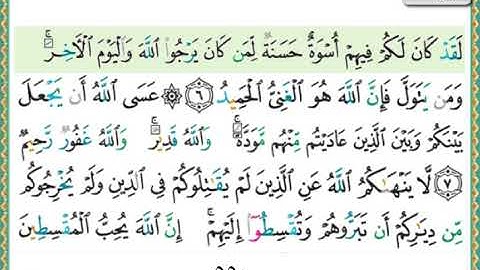 لَقَدْ كَانَ لَكُمْ فِيهِمْ أُسْوَةٌ حَسَنَةٌ لِّمَن كَانَ يَرْجُوا۟ ٱللَّهَ وَٱلْيَوْمَ ٱلْـَٔاخِرَ ۚ
وَمَن يَتَوَلَّ فَإِنَّ ٱللَّهَ هُوَ ٱلْغَنِىُّ ٱلْحَمِيدُ ٦ ۞ عَسَى ٱللَّهُ أَن يَجْعَلَ
بَيْنَكُمْ وَبَيْنَ ٱلَّذِينَ عَادَيْتُم مِّنْهُم مَّوَدَّةً ۚ وَٱللَّهُ قَدِيرٌ ۚ وَٱللَّهُ غَفُورٌ رَّحِيمٌ
٧ لَّا يَنْهَىٰكُمُ ٱللَّهُ عَنِ ٱلَّذِينَ لَمْ يُقَـٰتِلُوكُمْ فِى ٱلدِّينِ وَلَمْ يُخْرِجُوكُم
مِّن دِيَـٰرِكُمْ أَن تَبَرُّوهُمْ وَتُقْسِطُوٓا۟ إِلَيْهِمْ ۚ إِنَّ ٱللَّهَ يُحِبُّ ٱلْمُقْسِطِينَ